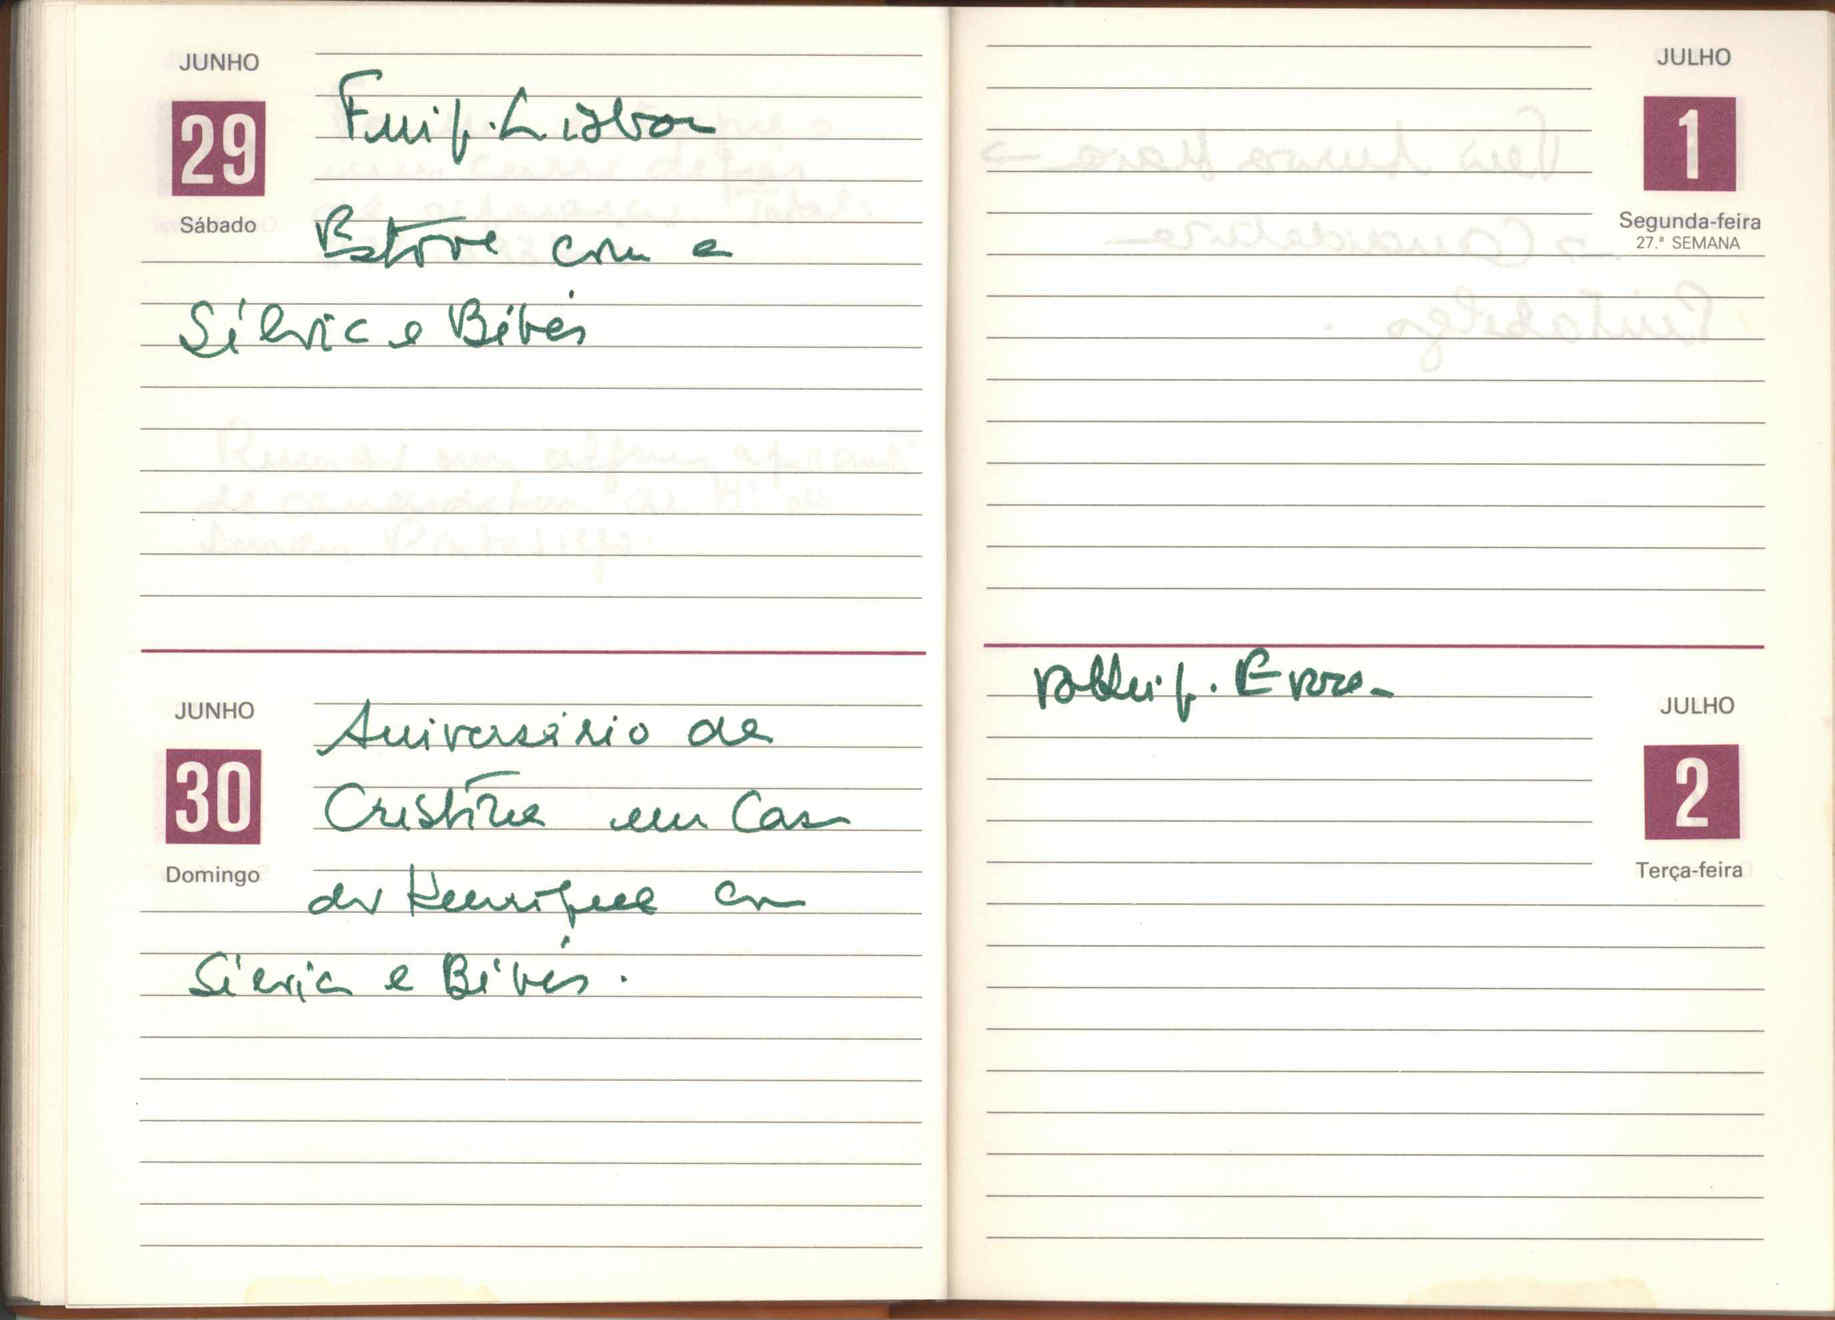 JUNHO
29
Sábado
Fui p. Lisboa
Estive com a
Sílvia e Bibés
JUNHO
30
Domingo
Aniversário da
Cristina em Casa
do Henrique com
Sílvia e Bibés.
JULHO
1
Segunda-feira
27.ª SEMANA
Voltei p. Évora
JULHO
2
Terça-feira